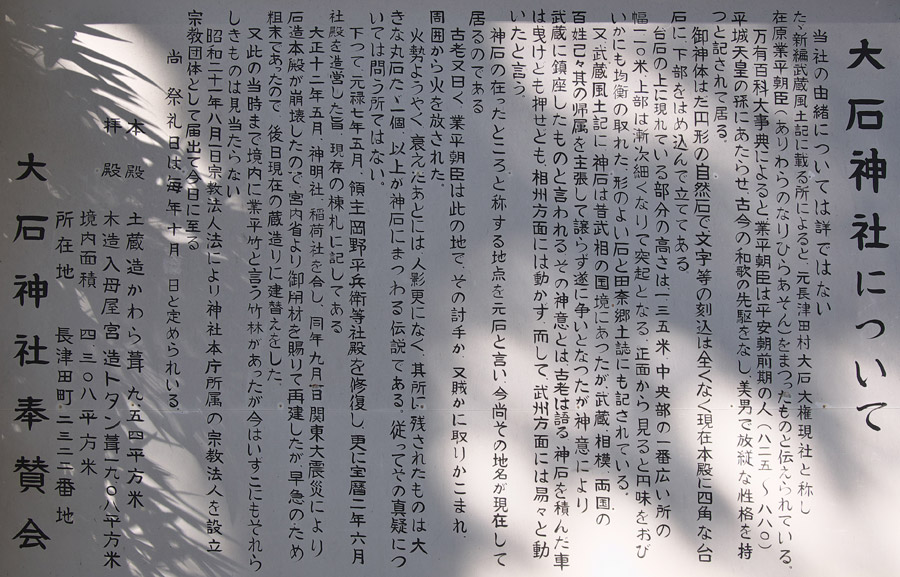 大石神社について
当社の由緒については詳ではない
たゞ新編武蔵風土記に載る所によると、元長津田村大石大権現社と称し
在原業平朝臣(ありわらのなりひらあそん)をまつったものと伝えられている。
万有百科大事典によると業平朝臣は平安朝前期の人(八二五〜八八〇)
平城天皇の孫にあたらせ古今の和歌の先駆をなし、美男で放縦な性格を持
つと記されて居る。
御神体はだ円形の自然石で文字等の刻込は全くなく現在本殿に四角な台
石に下部をはめ込んで立ててある
台石の上に現れている部分の高さは一三五米、中央部の一番広い所の
幅一〇米、上部は漸次細くなりて突起となる、正面から見ると円味をおび
いかにも均衡の取れた形のよい石と田奈郷土誌にも記されている。
又武蔵風土記に神石は昔武相の国境にあったが武蔵、相模、両国の
百姓己々其の帰属を主張して譲らず遂に争いとなったが神意により
武蔵に鎮座したものと言われるその神意とは古老は語る。神石を積んだ車
は曳けども押せども、相州方面には動かず、而して、武州方面には易々と動
いたと言う。
神石の在ったところと称する地点を元石と言い今尚その地名が現在して
居るのである
古老又曰く、業平朝臣は此の地で、その討手か、又賊かに取りかこまれ
周囲から火を放された。
火勢ようやく衰えたあとには人影更になく、其所に残されたものは大
きな丸石たゞ一個、以上が神石にまつわる伝説である。従ってその真疑につ
いては問う所ではない。
下つて、元禄七年五月、領主岡野平兵衛等社殿を修復し、更に宝暦二年六月
社殿を造営した旨、現存の棟札に記してある
大正十二年五月、神明社、稲荷社を合し、同年九月一日関東大震災により
石造本殿が崩壊したので宮内省より御用材を賜りて再建したが早急のため
粗末であったので、後日現在の蔵造りに建替えをした。
又此の当時まで境内に業平竹と言う竹林があったが今はいずこにもそれら
しきものは見当たらない
昭和二十一年八月一日宗教法人法により神社本庁所属の宗教法人を設立
宗教団体として届出て今日に至る
尚 祭礼日は毎年十月 日と定められいる
本殿 土蔵造かわら葺 九五四平方米
拝殿 木造入母屋宮造トタン葺二九〇八平方米
境内面積 四三〇八平方米
所在地 長津田町二三三二番地
大石神社奉賛会